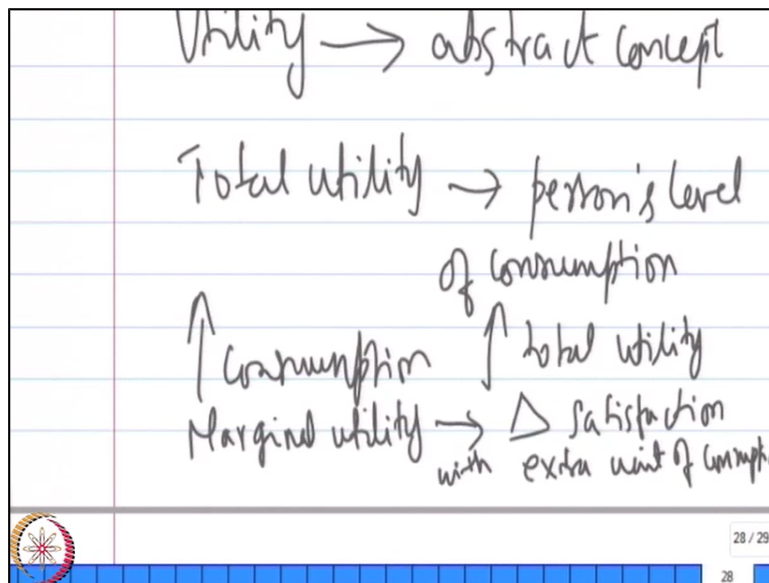 Utility → abstract concept
Total utility → person's level
of consumption
↑ Consumption ↑ total utility
Marginal utility → Δ satisfaction
with extra unit of consumpt
28 / 29
28